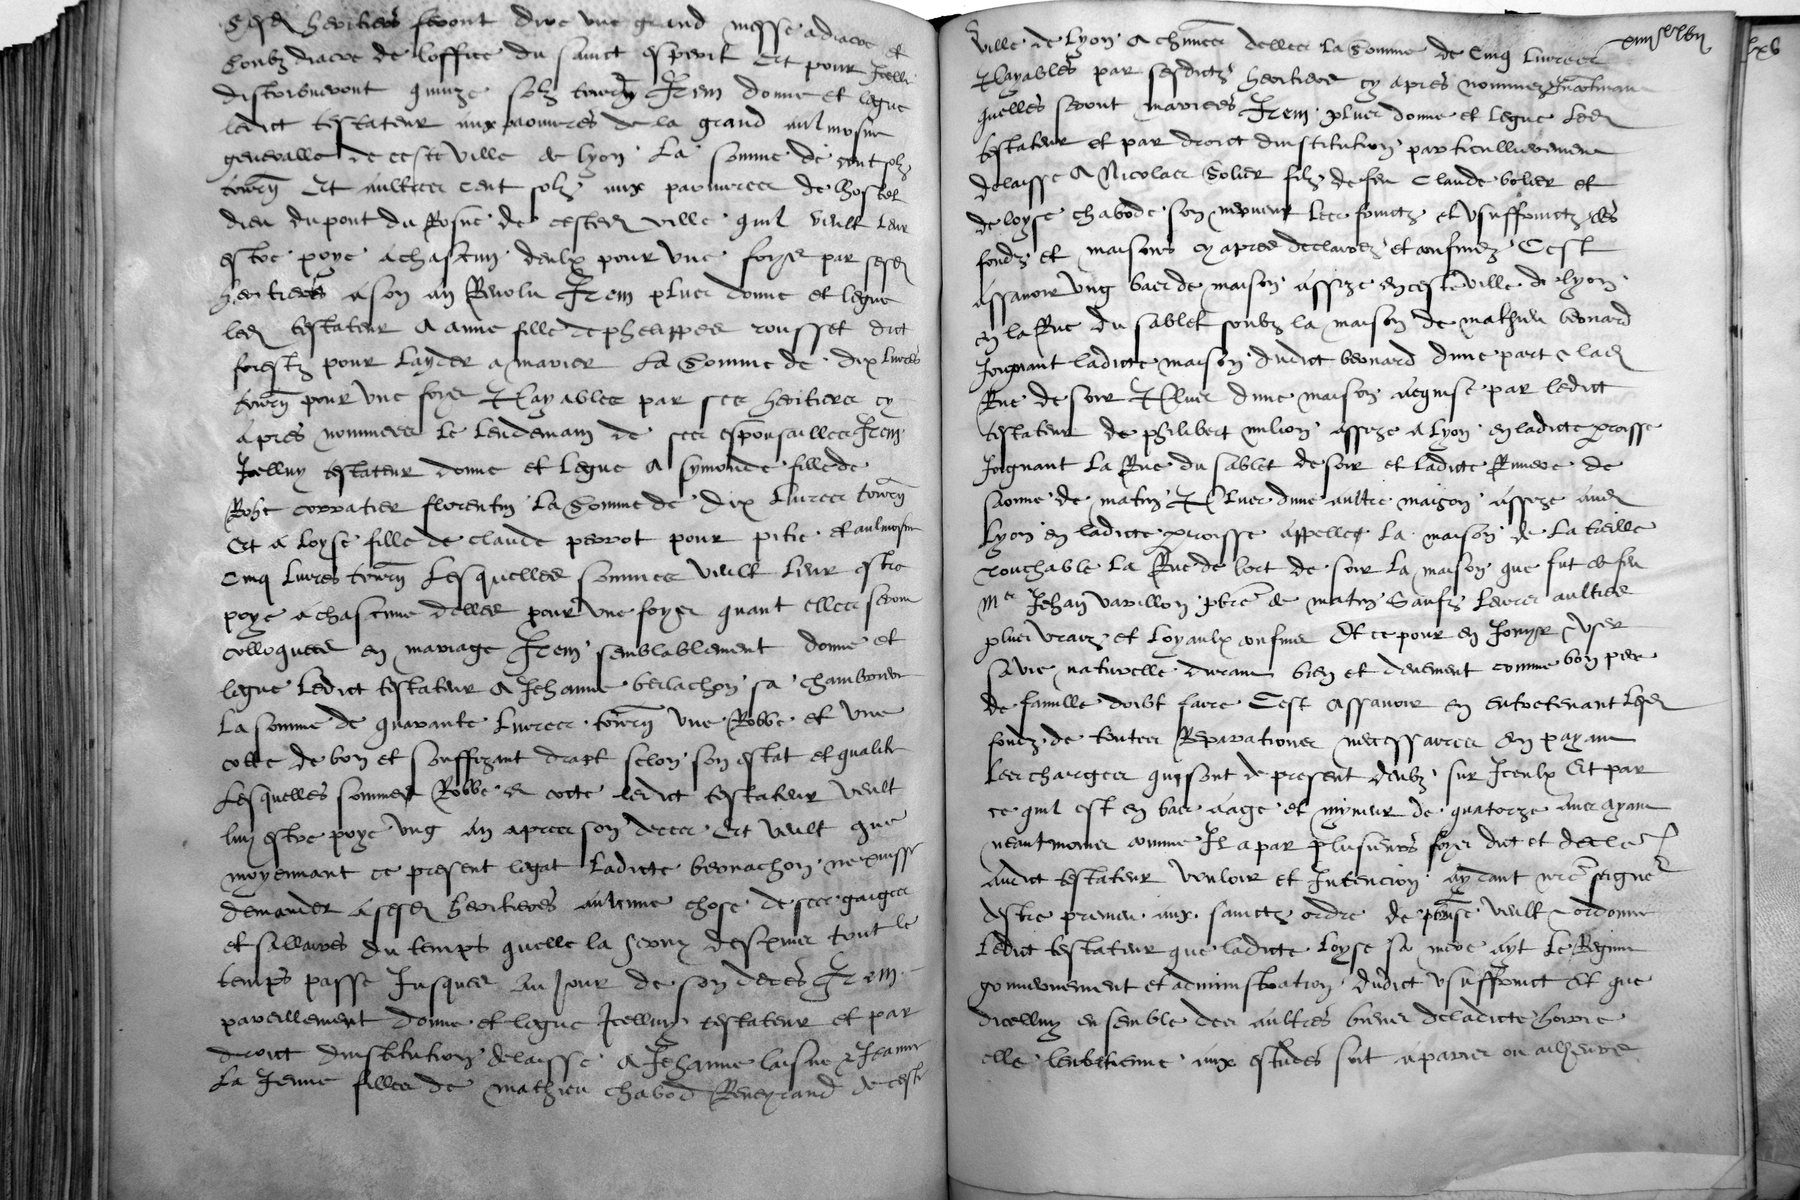 Sesd heritiers feront dire une grand messe a diacre et
soubz diacre de loffice du sainct esperit Et pour Icelle
distribueront quinze solz tourn Item donne et legue
ledict testateur aux paouvres de la grand aulmosne
generalle de ceste ville de lyon La somme de cent solz
tourn Et aultres cent solz aux paouvres de lhostel
dieu du pont du Rosne de cested ville quil veult leur
estre paye a chascun deulx pour une foys par sesd
heritiers a son an Revolu Item plus donne et legue
led testateur A anne fille de phelippes rousset dict
forestz pour layder a marier La Somme de dix livres
tourn pour une foys Payables par ses heritiers cy
apres nommes le lendemain de ses espousailles Item
Icelluy testateur donne et legue A symonde fille de
corratier florentin La Somme de dix livres tourn
Et a loyse fille de claude perrot pour pitie et aulmosne
cinq livres tourn Lesquelles sommes veult leur estre
paye a chascune delles pour une foys quant elles seront
colloquees en mariage Item semblablement donne et
legue ledict testateur A Jehanne berlachon sa chambriere
la somme de quarante livres tourn une Robbe et une
cotte de bon et souffizant drapt selon son estat et qualite
Lesquelles sommes Robbe et cotte ledict testateur veult
luy estre paye ung an apres son deces Et veult que
moyennant ce present legat ladicte bernachon ne puisse
demander a sesd heritiers aulcune chose de ses gaiges
et sallaires du temps quelle la servy despuis tout le
temps passe Jusques au Jour de son deces Item
pareillement donne et legue Icelluy testateur et par
droict dinstitution delaisse A Jehanne laisne & Jeanne
la Jeune filles de mathieu chabod de ceste
ville de lyon A chascune delles la Somme de Cinq livres
Payables par sesdictz heritiers cy apres nommez
quelles seront mariees Item plus donne et legue Led
testateur et par droict dinstitution particullierement
delaisse A Nicolas Bolier filz de feu Claude bolier et
de loyse chabode son nepveur les fruictz et usuffruictz des
fondz et maisons cy apres declairez et confinez Cest
assavoir ung bas de maison assize en ceste ville de lyon
en la Rue du sablet soubz la maison de mathieu beonard
Joignant ladicte maison dudict beonard dune part & lad
Rue de soir Plus dune maison acquise par ledict
testateur de philibert milion assize A lyon en ladicte paroisse
Joignant la Rue du sablet de soir et ladicte Riviere de
saonne de matin Plus dune aultre maison assize aud
lyon en ladicte paroisse appellee la maison de la
touchable la Rue de bort de soir la maison que fut de feu
Mer Jehan varillon pbre de matin Saufz leurs aultres
plus vrais et loyaulx confins Et ce pour en Jouyr & user
sa vie naturelle durant bien et deuement comme bon pere
de famille doibt faire Cest assavoir en entretenant lesd
fondz de toutes Reparations necessaires en payant
les charges qui sont de present deubz sur Iceulx Et par
ce quil est en bas aage et myneur de quatorze ans ayant
neantmoins comme Il a par plusieurs foys dict et declere
audict testateur vouloir et Intencion aydant nre seigneur
destre promeu aux sainctz ordre de pbrise veult & ordonne
ledict testateur que ladicte loyse sa mere ayt le Regime
gouvernement et administration dudict usuffruict Et que
dicelluy ensemble des aultres biens de ladicte hoirie
elle lentretienne aux estudes soit a paris ou ailleurs